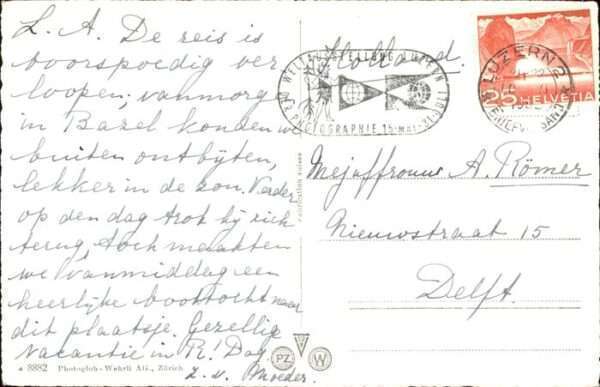 L. A. De reis is
voorspoedig ver
loopen; vanmorg
in Bazel konden we
buiten ontbyten,
lekker in de zon. Verder
op den dag trok hy zich
terug, toch maakten
we vanmiddag een
heerlijke boottocht naar
dit plaatsje. Gezellig
vacantie in R! Dag
z. v. Moeder.
8882 Photoglob-Wehrli AG., Zürich
PZ W
WELTAUSSTELLUNG LUZERN
PHOTOGRAPHIE 15. MAI
Holland.
LUZERN 2
25 HELVETIA
Mejuffrouw A. Römer
Nieuwstraat 15
Delft.